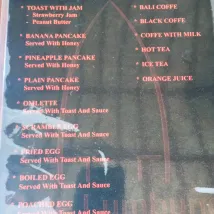 * TOAST WITH JAM
- Strawberry Jam
- Peanut Butter
* BANANA PANCAKE
Served With Honey
* PINEAPPLE PANCAKE
Served With Honey
* PLAIN PANCAKE
Served With Honey
* OMLETTE
Served With Toast And Sauce
* SCRAMBLE EGG
Served With Toast And Sauce
* FRIED EGG
Served With Toast And Sauce
* BOILED EGG
Served With Toast And Sauce
* POACHED EGG
Served With Toast And Sauce
* BALI COFFE
* BLACK COFFE
* COFFE WITH MILK
* HOT TEA
* ICE TEA
* ORANGE JUICE